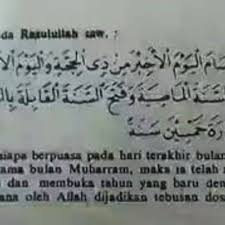 da Rasulullah saw. :
صَامَ الْيَوْمَ الْأَخِيْرَ مِنْ ذِى الْحِجَّةِ وَالْيَوْمَ الْأَ
السَّنَةَ الْمَاضِيَةَ وَفَتَحَ السَّنَةَ الْقَابِلَةَ بِال
رَةَ خَمْسِيْنَ سَنَةً
siapa berpuasa pada hari terakhir bulan
ama bulan Muharram, maka ia telah
dan membuka tahun yang baru den
ana oleh Allah dijadikan tebusan dos